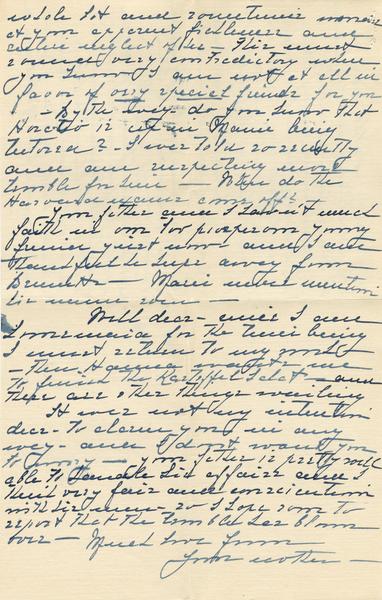 whole lot and sometimes worried
at your apparent fickleness and
entire neglect of her - This must
sound very contradictory when
you know I am not at all in
favor of any special friend for you
- By the way do you know that
Horatio is up in Maine being
tutored? - I was told so recently
and am respecting more
trouble for him - When do the
Harvard exams come off?
Your father and I haven't much
faith in our too prosperous young
friend just now - and I am
thankful he keeps away from
- Marie never mentions
his name now -
Well dear - since I am
for the time being
I must return to my work
- then wants me
to finish the - and
there are other things waiting
It was not my intention
dear - to alarm you in any
way - and I don't want you
to worry - your father is pretty well
able to handle his affairs and I
think very fair and conscientious
with his men - so I hope soon to
report that the trouble has blown
over - Much love from
Your mother -